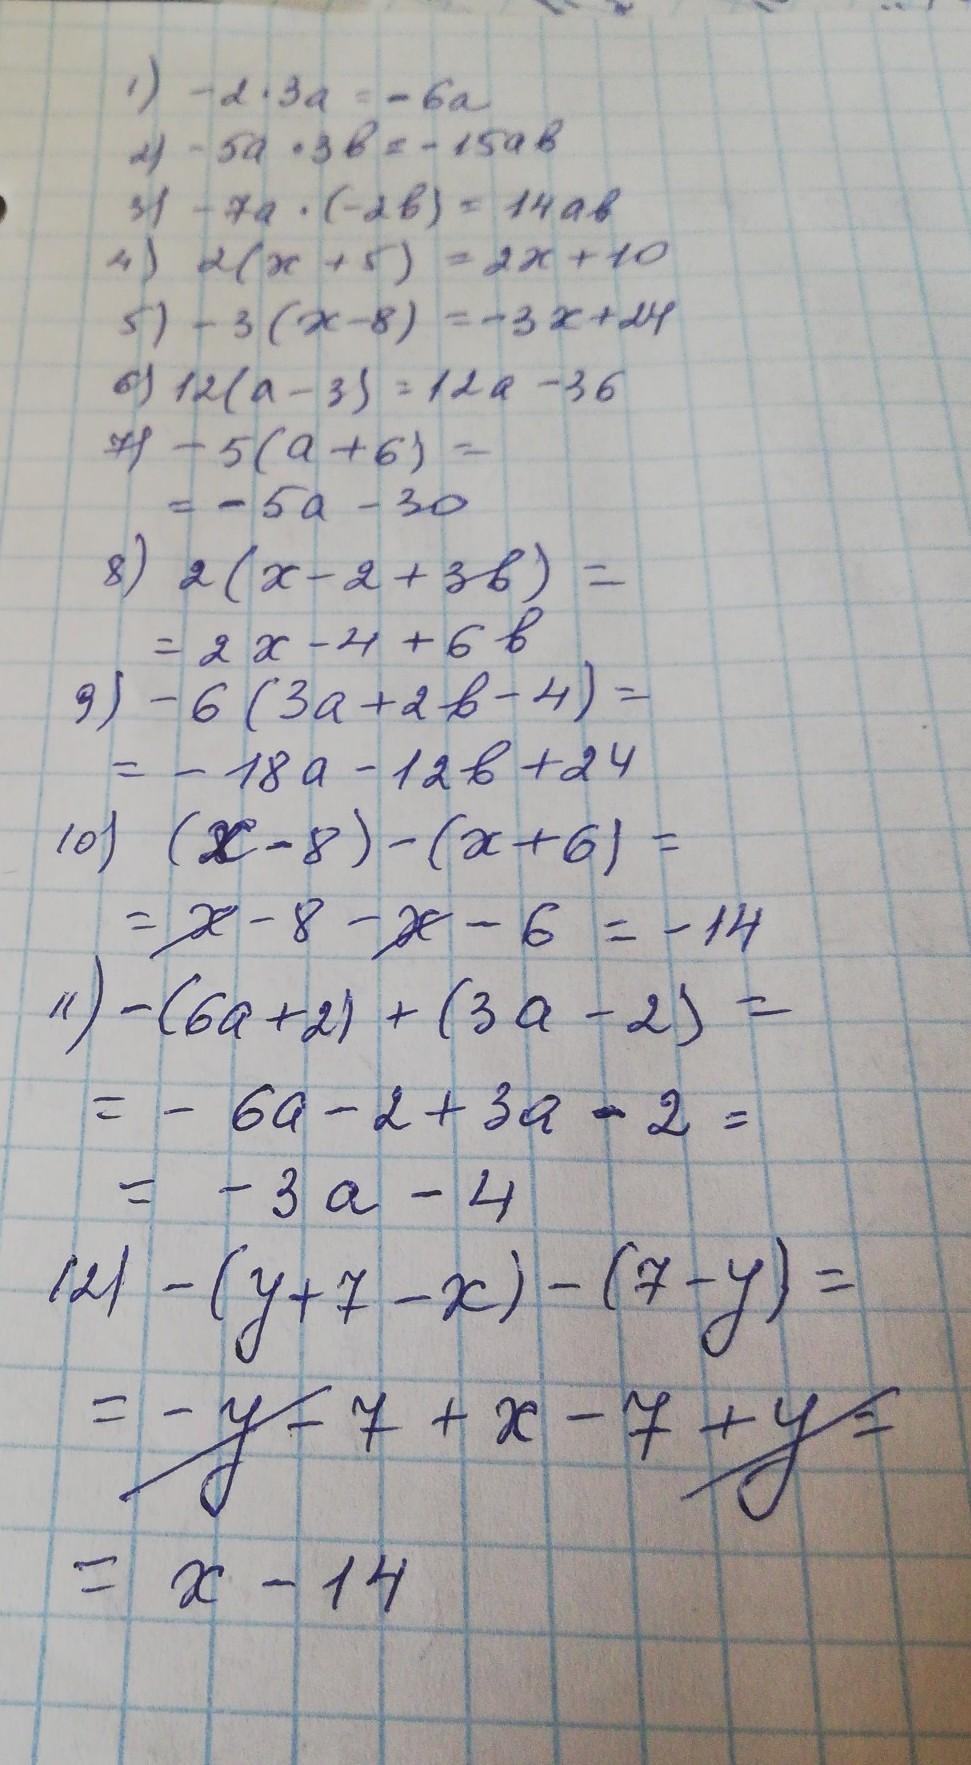 1) -2·3a = -6a
2) -5a·3b = -15ab
3) -7a·(-2b) = 14ab
4) 2(x+5) = 2x+10
5) -3(x-8) = -3x+24
6) 12(a-3) = 12a-36
7) -5(a+6) =
= -5a-30
8) 2(x-2+3b) =
= 2x-4+6b
9) -6(3a+2b-4) =
= -18a-12b+24
10) (x-8)-(x+6) =
= x-8-x-6 = -14
11) -(6a+2)+(3a-2) =
= -6a-2+3a-2 =
= -3a-4
12) -(y+7-x)-(7-y) =
= -y-7+x-7+y =
= x-14